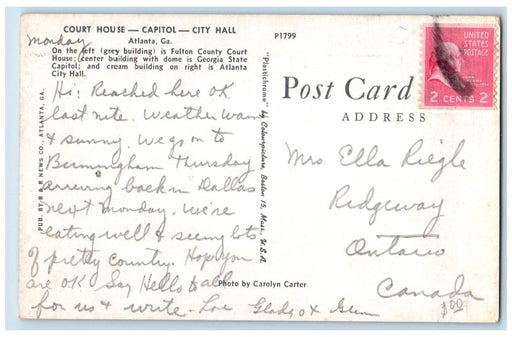 COURT HOUSE — CAPITOL — CITY HALL
Atlanta, Ga.
On the left (grey building) is Fulton County Court
House; center building with dome is Georgia State
Capitol; and cream building on right is Atlanta
City Hall.
P1799
Monday
Hi: Reached here OK
last nite. Weather warm
& sunny. We go on to
Birmingham Thursday
arriving back in Dallas
next Monday. We're
eating well & seeing lots
of pretty country. Hope you
are OK Say Hello to all
for us & write. Love Gladys & Glenn
PUB. BY R & R NEWS CO., ATLANTA, GA.
"Plastichrome" by Colourpicture, Boston 15, Mass., U.S.A.
Photo by Carolyn Carter
Post Card
ADDRESS
UNITED
STATES
POSTAGE
2 CENTS 2
Mrs. Ella Riegle
Ridgeway
Ontario
Canada